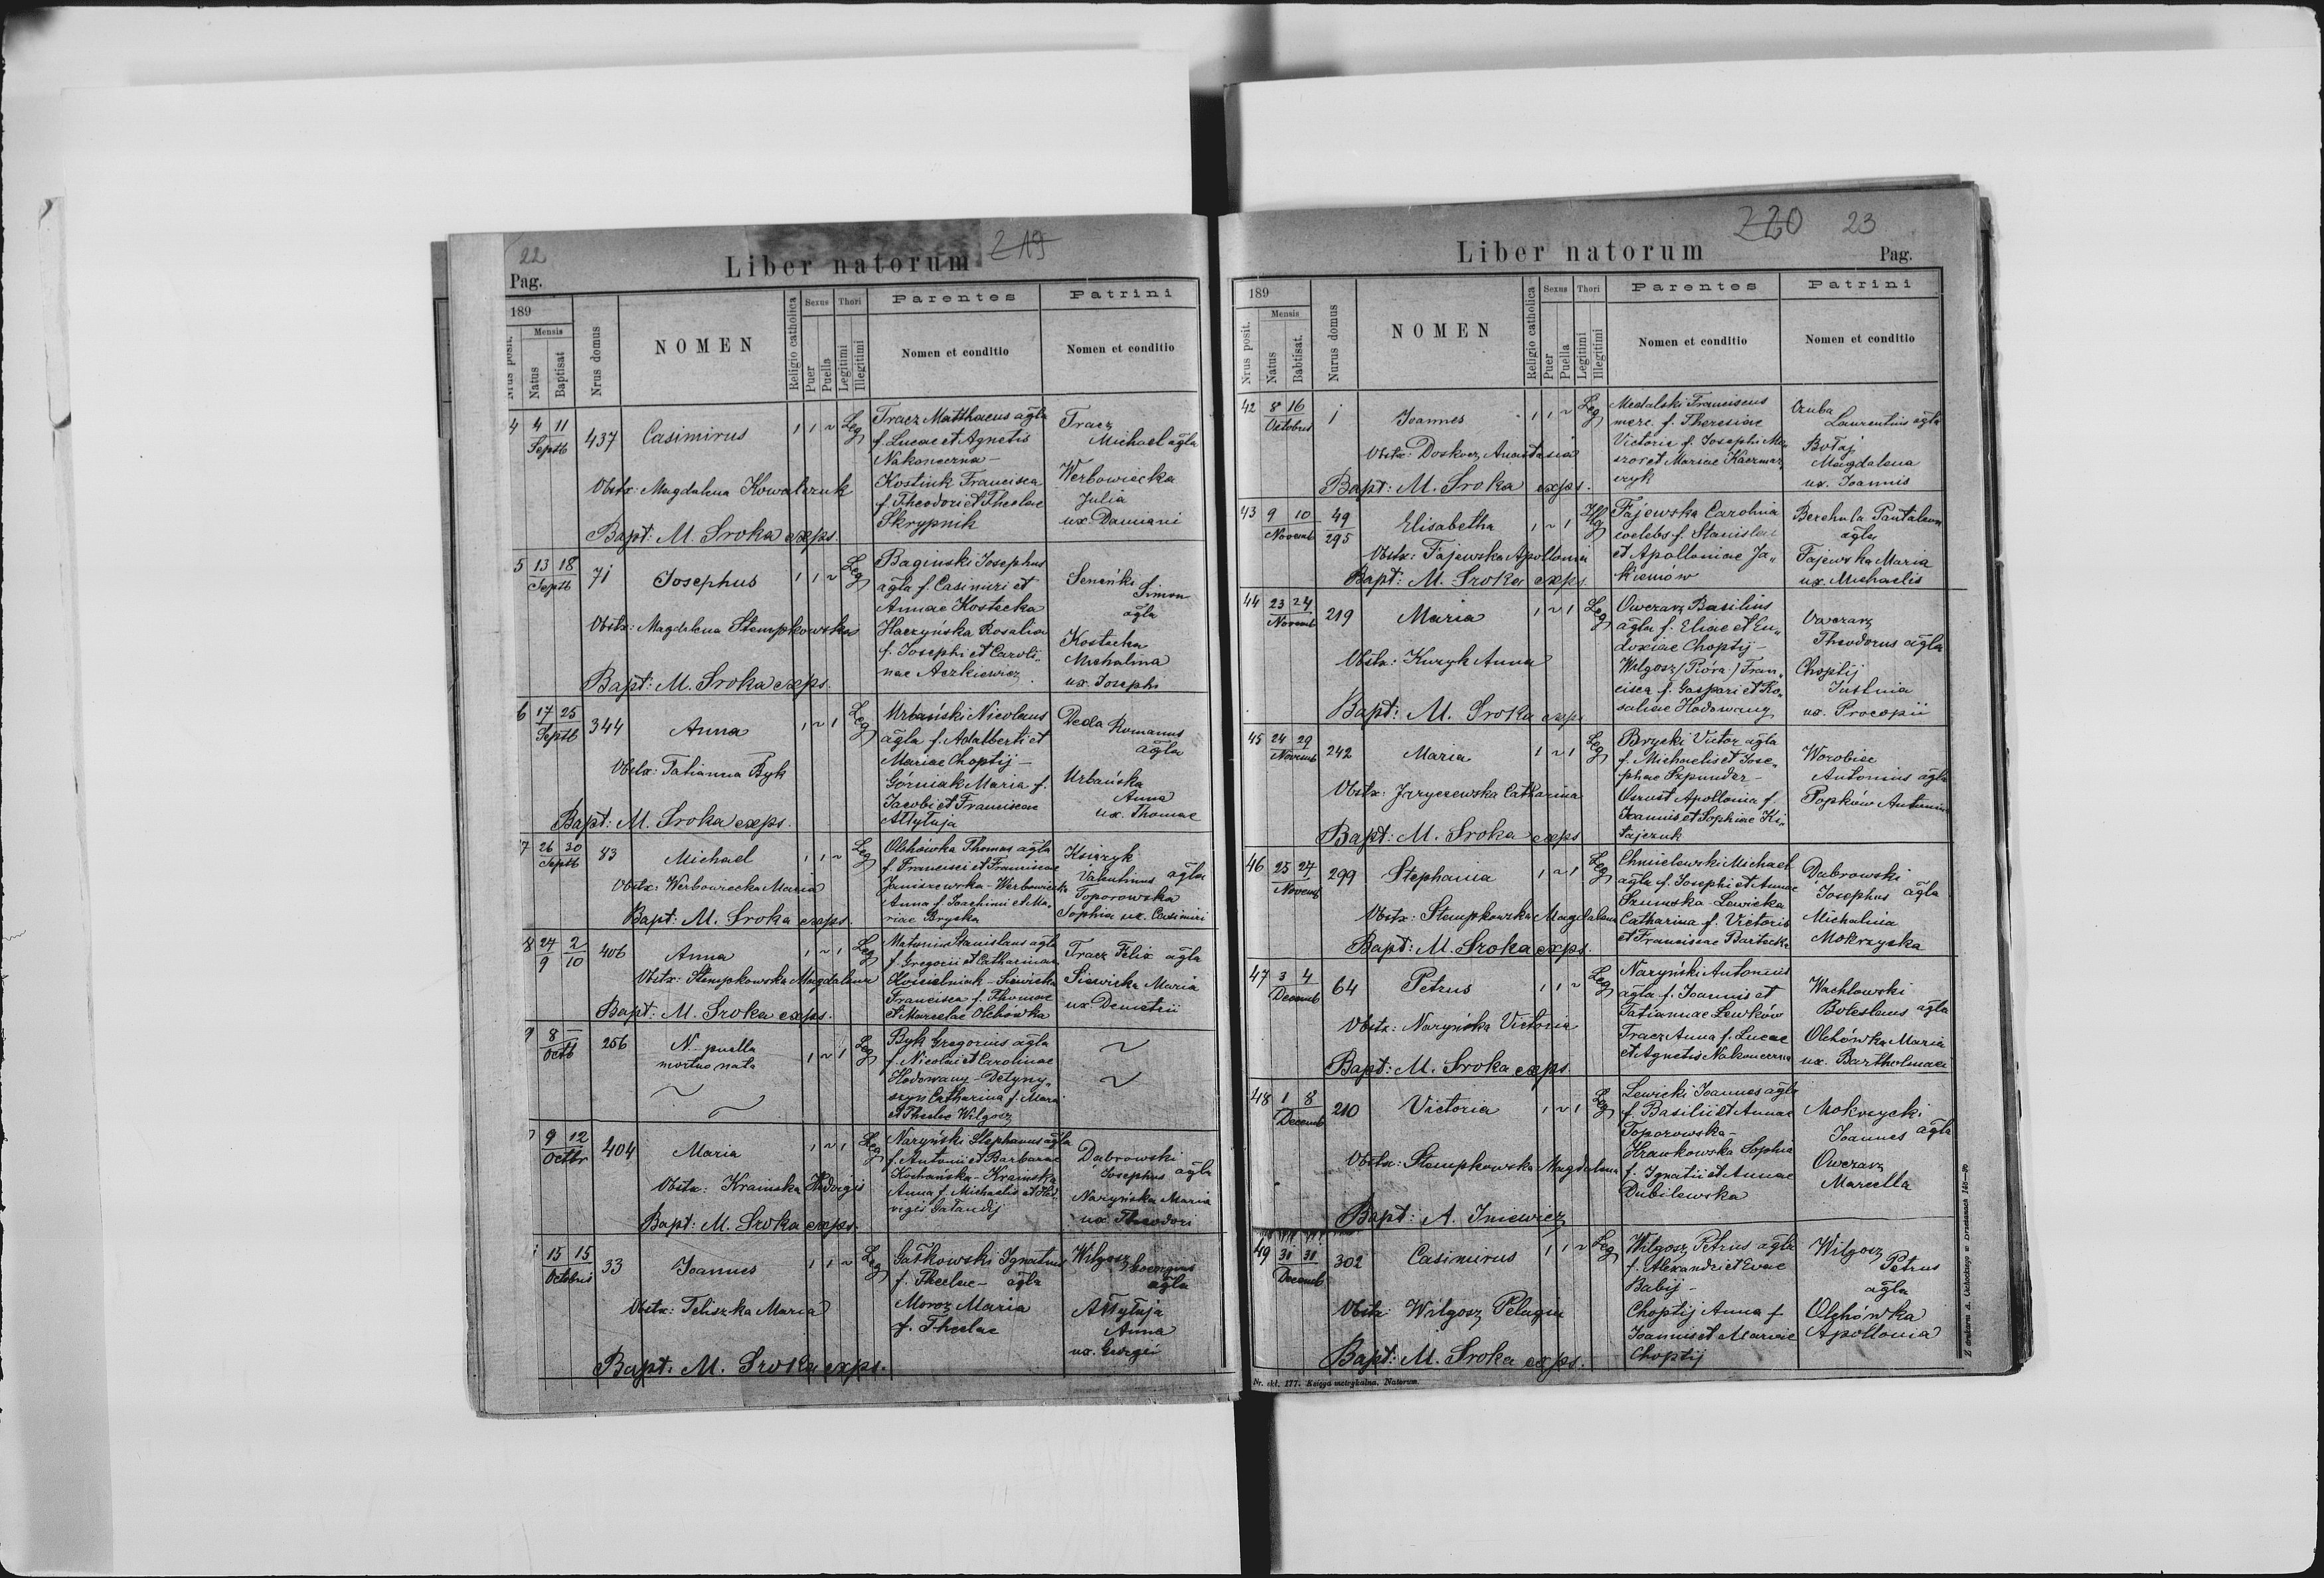 22
219
Pag.
Liber natorum
189
Mensis
Nrus posit.
Natus
Baptisat
Nrus domus
NOMEN
Religio catholica
Sexus
Puer
Puella
Thori
Legitimi
Illegitimi
Parentes
Nomen et conditio
Patrini
Nomen et conditio
4 4 11 Septb 437 Casimirus 1 1 ~ Leg
Tracz Matthaeus agla
f. Lucae et Agnetis
Nakoneczna -
Kostiuk Francisca
f. Theodori et Theclae
Skrypnik
Tracz
Michael agla
Werbowiecka
Julia
ux. Damiani
Obstx: Magdalena Kowalczuk
Bapt: M. Sroka exps.
5 13 18 Septb 71 Josephus 1 1 ~ Leg
Baginski Josephus
agla f. Casimiri et
Annae Kostecka
Haczyńska Rosalia
f. Josephi et Caroli„
nae Aczkiewicz
Simon
agla
Kostecka
Michalina
ux. Josephi
Obstx: Magdalena Stempkowska
Bapt: M. Sroka exps.
6 17 25 Septb 344 Anna 1 ~ 1 Leg
Urbański Nicolaus
agla f. Adalberti et
Mariae Choptij -
Górniak Maria f.
Jacobi et Franciscae
Attytuja
Deda Romanus
agla
Urbańska
Anna
ux. Thomae
Obstx: Tatianna Byk
Bapt: M. Sroka exps.
7 26 30 Septb 83 Michael 1 1 ~ Leg
Olchówka Thomas agla
f. Francisci et Franciscae
Janiszewska - Werbowiecka
Anna f. Joachimi et Ma„
riae Brycka
Książyk
Valentinus agla
Toporowska
Sophia ux. Casimiri
Obstx: Werbowiecka Maria
Bapt: M. Sroka exps.
8 24 9 2 10 406 Anna 1 ~ 1 Leg
Stanislaus agla
f. Gregorii et Catharinae
Kościelniak - Siewicka
Francisca f. Thomae
et Marcelae Olchówka
Tracz Felix agla
Siewicka Maria
ux Demetrii
Obstx: Stempkowska Magdalena
Bapt: M. Sroka exps.
9 8 — Octb 256 N - puella 1 ~ 1 Leg
mortuo nata
Byk Gregorius agla
f. Nicolai et Carolinae
Hodowany - Detyny„
szyn Catharina f. Marci
et Theclae Wilgosz
9 12 Octbr 404 Maria 1 ~ 1 Leg
Naryński Stephanus agla
f. Antonii et Barbarae
Kochańska - Krainska
Anna f. Michaelis et Hed„
vigis Gałandij
Dabrowski
Josephus agla
Naryńska Maria
ux Theodori
Obstx: Krainska Hedvigis
Bapt: M. Sroka exps.
15 15 Octobris 33 Joannes 1 1 ~ Leg
Gałkowski Ignatius
f. Theclae - agla
Moroz Maria
f. Theclae
Wilgosz
Georgius
agla
Attytuja
Anna
ux. Georgii
Obstx: Feliszka Maria
Bapt: M. Sroka exps.
220 23
Liber natorum
Pag.
189
Mensis
Nrus posit.
Natus
Babtisat.
Nurus domus
NOMEN
Religio catholica
Sexus
Puer
Puella
Thori
Legitimi
Illegitimi
Parentes
Nomen et conditio
Patrini
Nomen et conditio
42 8 16 Octobris 1 Joannes 1 1 ~ Leg
Medalski Franciscus
merc. f. Theresiae
Victoria f. Josephi Me„
szor et Mariae Kaczmar„
czyk
Laurentius agla
Bołaj
Magdalena
ux. Joannis
Obstx: Doskocz Anastasia
Bapt: M. Sroka exps.
43 9 10 Novemb 49 295 Elisabetha 1 ~ 1 Illg
Fajewska Carolina
coelebs f. Stanislai
et Apolloniae Ja„
kimów
Berehula Pantaleon
agla
Fajewska Maria
ux. Michaelis
Obstx: Fajewska Apollonia
Bapt: M. Sroka exps.
44 23 24 Novemb 219 Maria 1 ~ 1 Leg
Owczarz Basilius
agla f. Eliae et Eu„
doxiae Choptij -
Wilgosz (Pióra) Fran„
cisca f. Gaspari et Ro„
saliae Hodowany
Owczarz
Theodorus agla
Choptij
Justinia
ux. Procopii
Obstx: Kuryk Anna
Bapt: M. Sroka exps
45 24 29 Novemb 242 Maria 1 ~ 1 Leg
Brycki Victor agla
f. Michaelis et Jose„
phae Szpunder -
Apollonia f.
Joannis et Sophiae Ki„
tajczuk
Worobiec
Antonius agla
Popków Antonina
Obstx: Jaryczewska Catharina
Bapt: M. Sroka exps
46 25 27 Novemb 299 Stephania 1 ~ 1 Leg
Chmielewski Michael
agla f. Josephi et Annae
Szumska - Lewicka
Catharina f. Victoris
et Franciscae Bartecka
Dabrowski
Josephus agla
Michalina
Mokrzycka
Obstx: Stempkowska Magdalena
Bapt: M. Sroka exps.
47 3 4 Decemb 64 Petrus 1 1 ~ Leg
Naryński Antonius
agla f. Joannis et
Tatiannae Lewków
Tracz Anna f. Lucae
et Agnetis Nakoneczna
Wachlowski
Boleslaus agla
Olchówka Maria
ux. Bartholmaei
Obstx: Naryńska Victoria
Bapt: M. Sroka exps.
48 1 8 Decemb 210 Victoria 1 ~ 1 Leg
Lewicki Joannes agla
f. Basilii et Annae
Toporowska -
Hrankowska Sophia
f. Ignatii et Annae
Dubilewska
Mokrzycki
Joannes agla
Owczarz
Marcella
Obstx: Stempkowska Magdalena
Bapt: A. Iniewicz
49 31 31 Decemb 302 Casimirus 1 1 ~ Leg
Wilgosz Petrus agla
f. Alexandri et Evae
Babij -
Choptij Anna f
Joannis et Mariae
Choptij
Wilgosz
Petrus
agla
Olchówka
Apollonia
Obstx: Wilgosz Pelagia
Bapt: M. Sroka exps.
Nr. skł. 177. Księga metrykalna. Natorum.